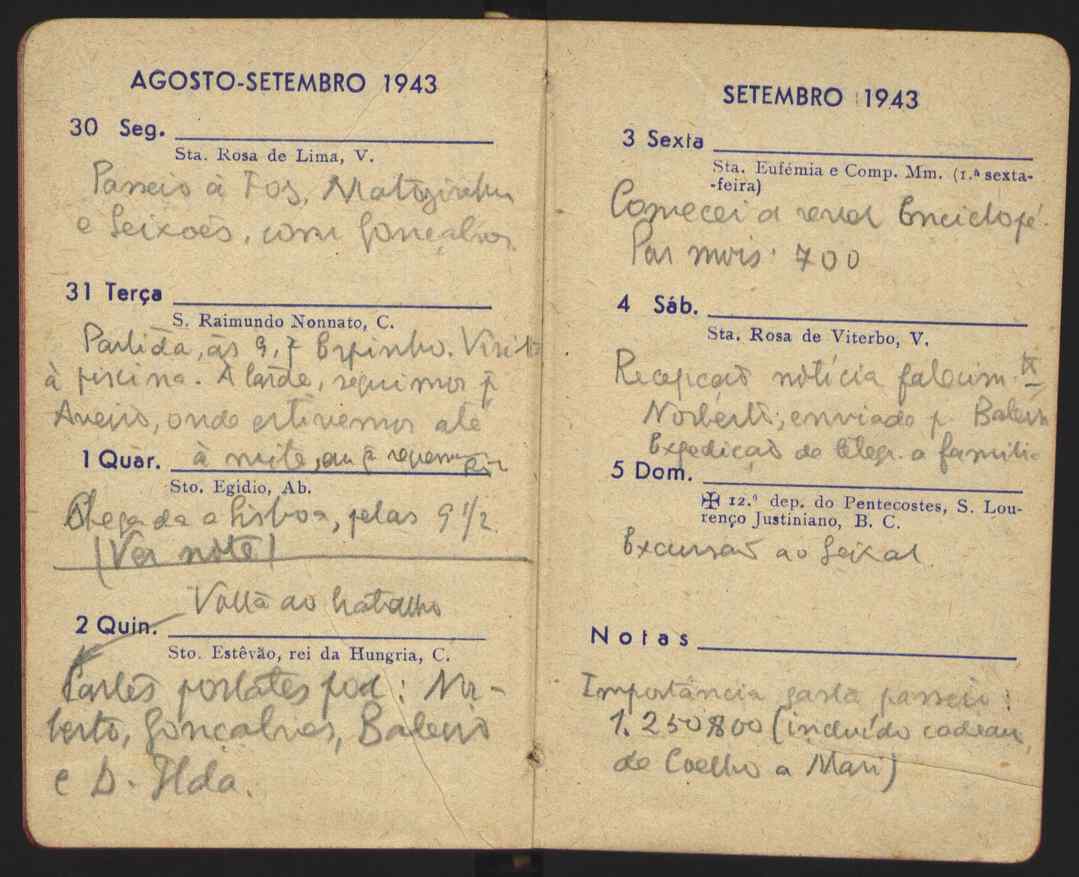 AGOSTO-SETEMBRO 1943
30 Seg.
Sta. Rosa de Lima, V.
Passeio à Foz, Matozinhos
e Leixões, com Gonçalves
31 Terça
S. Raimundo Nonnato, C.
Partida, às 9, p Espinho. Visita
à piscina. À tarde, seguimos p
Aveiro, onde estivemos até
1 Quar.
à noite,
Sto. Egídio, Ab.
Chegada a Lisboa, pelas 9 1/2
(Ver note)
Volta ao trabalho
2 Quin.
Sto. Estêvão, rei da Hungria, C.
Cartes postates pod: Nor-
berto, Gonçalves, Baleiro
e D. Ilda.
SETEMBRO 1943
3 Sexta
Sta. Eufémia e Comp. Mm. (1.ª sexta-
-feira)
Comecei a Enciclopé.
Par mois: 700
4 Sáb.
Sta. Rosa de Viterbo, V.
Recepção notícia falecim.
Norberto; enviado p. Baleiro
Expedição de telegr. a família
5 Dom.
✠ 12.º dep. do Pentecostes, S. Lou-
renço Justiniano, B. C.
Excursão ao Seixal
Notas
Importância gasta passeio:
1.250$00 (incluído cadeau
de Coelho a Mari)